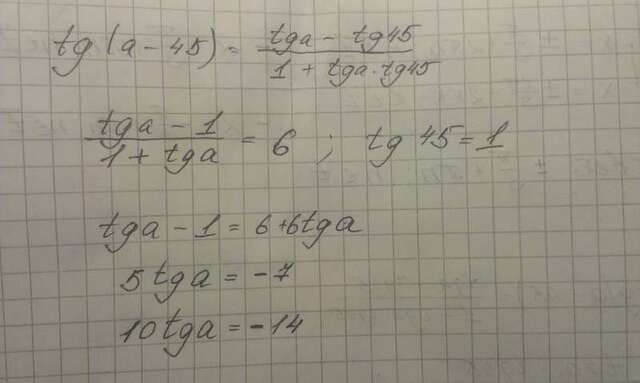 tg(a - 45) = (tga - tg45)/(1 + tga·tg45)
(tga - 1)/(1 + tga) = 6 ; tg 45 = 1
tga - 1 = 6 + 6tga
5tga = -7
10tga = -14